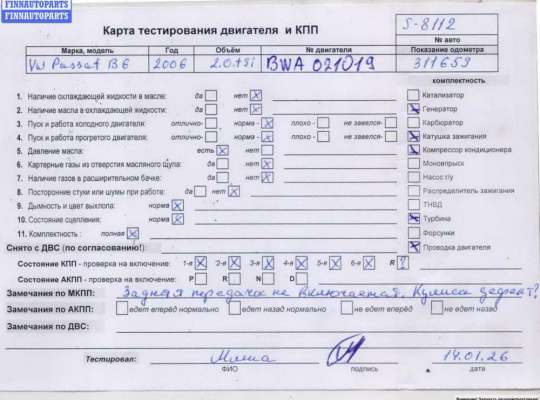 FINNAUTOPARTS
FINNAUTOPARTS
FINNAUTOPARTS
Карта тестирования двигателя и КПП
S-8112
№ авто
Марка, модель Год Объём № двигателя Показание одометра
VW Passat B6 2006 2.0 tsi BWA 021019 311659
комплектность
1. Наличие охлаждающей жидкости в масле: да нет X
Катализатор
2. Наличие масла в охлаждающей жидкости: да нет X
X Генератор
3. Пуск и работа холодного двигателя: отлично- норма - X плохо - не завелся-
Карбюратор
4. Пуск и работа прогретого двигателя: отлично- норма - X плохо - не завелся-
X Катушка зажигания
5. Давление масла: есть X нет
X Компрессор кондиционера
6. Картерные газы из отверстия масляного щупа: да нет X
Моновпрыск
7. Наличие газов в расширительном бачке: да нет X
Насос г/у
8. Посторонние стуки или шумы при работе: да нет X
Распределитель зажигания
9. Дымность и цвет выхлопа: норма X
ТНВД
10. Состояние сцепления: норма X
X Турбина
11. Комплектность : полная X
Форсунки
Снято с ДВС (по согласованию!):
X Проводка двигателя
Состояние КПП - проверка на включение: 1-я X 2-я X 3-я X 4-я X 5-я X 6-я X R ?
Состояние АКПП - проверка на включение: P R N D
Замечания по МКПП: Задняя передача не включается. Кулиса дефект?
Замечания по АКПП: едет вперёд нормально едет назад нормально не едет вперёд не едет назад
Замечания по ДВС:
Тестировал: Миша 14.01.26
ФИО подпись дата